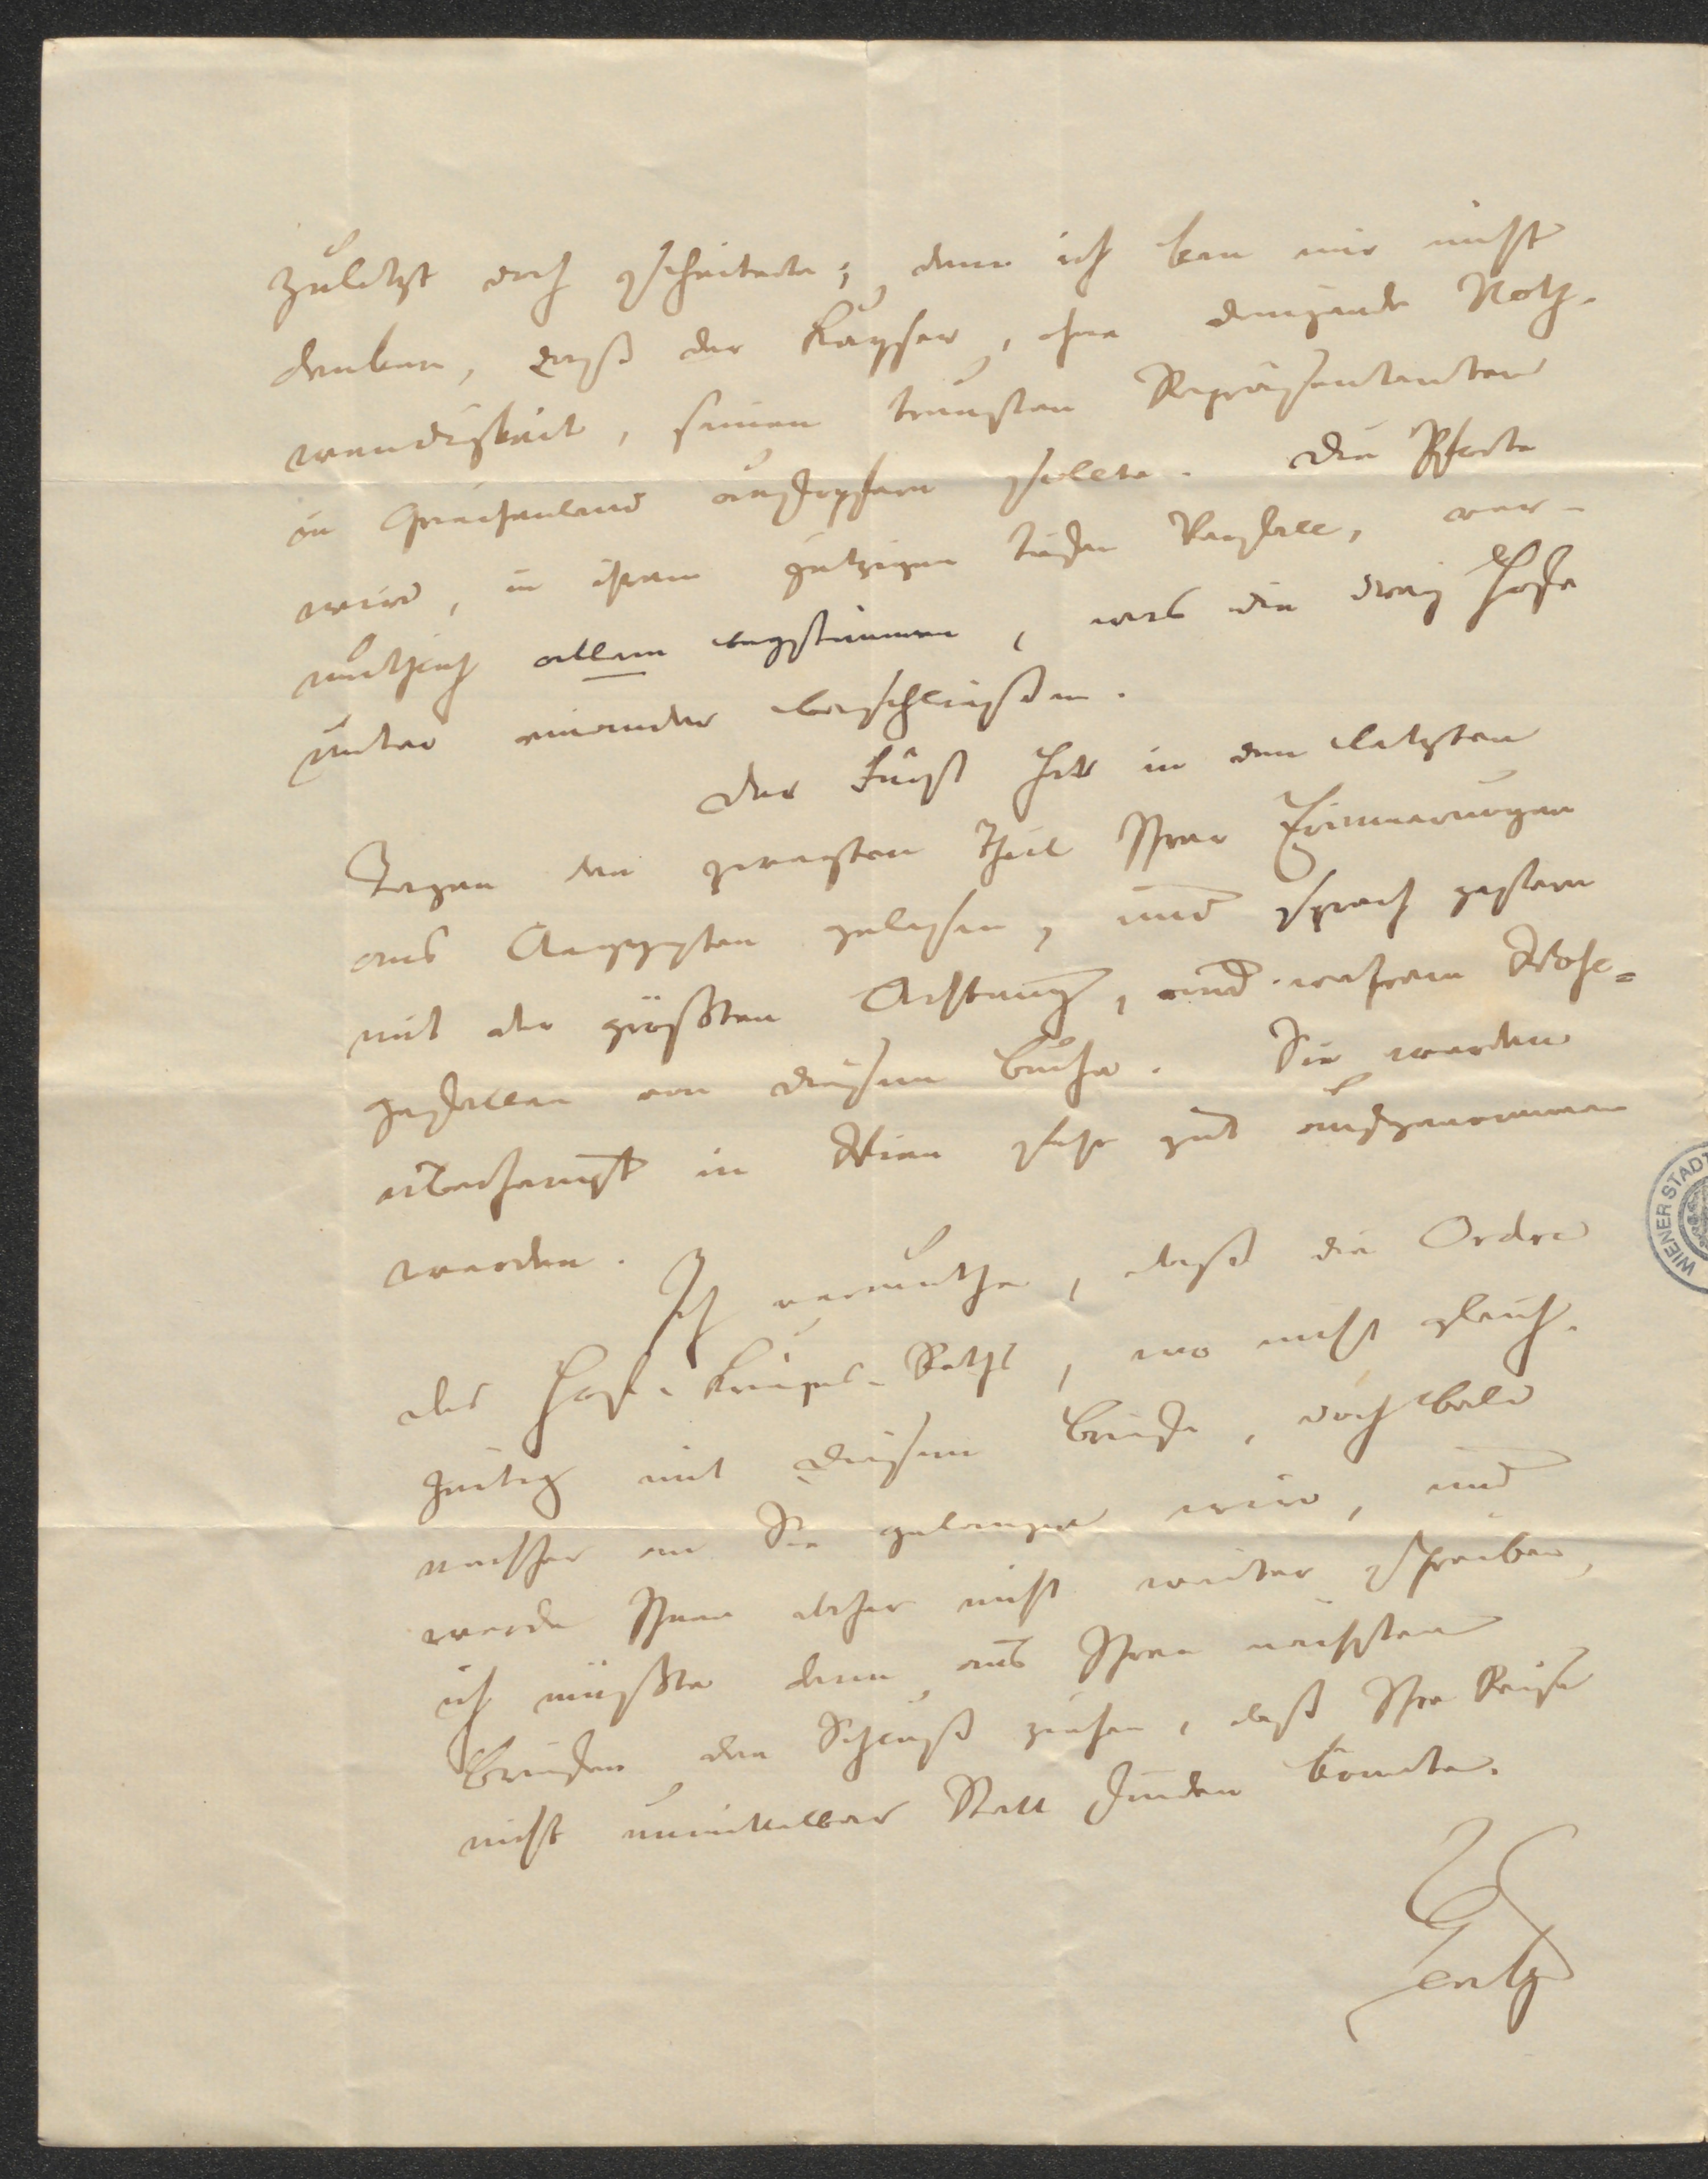 zuletzt doch scheiterte; denn ich kan mir nicht
denken, daß der Kayser, ohne dringende Noth-
wendigkeit, seinen treusten Repräsentanten
in Griechenland aufopfern sollte. Die Pforte
wird, in ihrem jetzigen tiefen Verfall, ver-
muthlich allem beystimmen, was die drey Höfe
unter einander beschließen.
Der Fürst hat in den letzten
Tagen den zweyten Theil Ihrer Erinnerungen
aus Aegypten gelesen, und sprach gestern
mit der größten Achtung, und wahrem Wohl=
gefallen von diesem Buche. Sie werden
überhaupt in Wien sehr gut aufgenommen
werden.
Ich vermuthe, daß die Ordre
des Hof-Kriegs-Raths, wo nicht gleich-
zeitig mit diesem Briefe, doch bald
nachher an Sie gelangen wird, und
werde Ihnen daher nicht weiter schreiben,
ich müßte denn aus Ihren nächsten
Briefen den Schluß ziehen, daß Ihre Reise
nicht unmittelbar Statt finden könnte.
Gentz
WIENER STADT